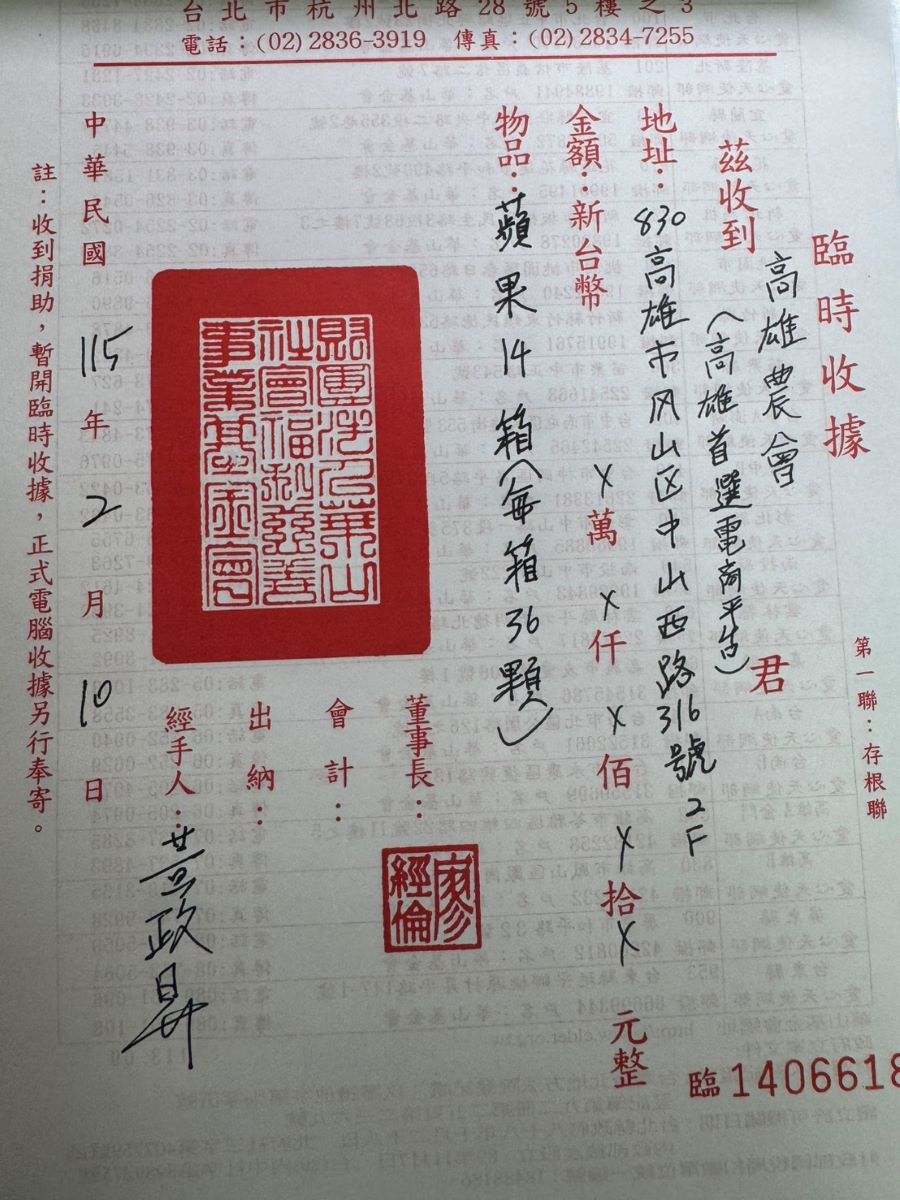 台北市杭州北路28號5樓之3
電話：(02)2836-3919 傳真：(02)2834-7255
臨時收據
茲收到 高雄農會 君
(高雄首選電商平台)
地址：830高雄市凤山区中山西路316號2F
金額：新台幣 X 萬 X 仟 X 佰 X 拾 X 元整
物品：蘋果14箱(每箱36顆)
財團法人華山
社會福利慈善
事業基金會
董事長：
廖
經倫
會計：
出納：
經手人：黃政昇
中華民國 115 年 2 月 10 日
註：收到捐助，暫開臨時收據，正式電腦收據另行奉寄。
第一聯：存根聯
臨 1406618